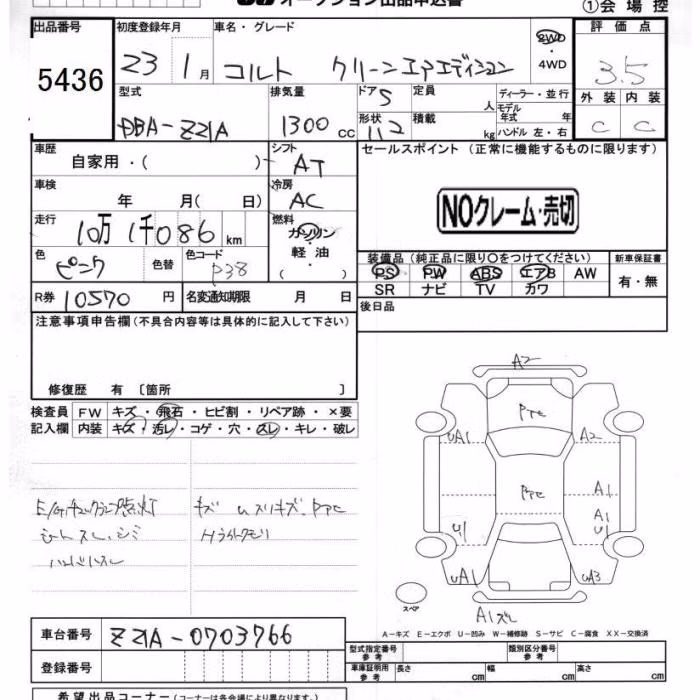 オークション出品申込書
①会場控
出品番号 初度登録年月 車名・グレード 評価点
5436 23 1月 コルト クリーンエアエディション 2WD ・ 4WD 3.5
型式 排気量 ドア 5 定員 人 ディーラー・並行 外装 内装
DBA-Z21A 1300cc 形状 112 積載 kg モデル年式 年 ハンドル 左・右 C C
車歴 シフト セールスポイント(正常に機能するものに限ります)
自家用・( ) AT
車検 冷房
年 月( 日) AC
NOクレーム・売切
走行 燃料
10万1千086km ガソリン・軽油・( )
色 色替 色コード 装備品(純正品に限り〇をつけてください) 新車保証書
ピンク P38 PS PW ABS エアB AW 有・無
SR ナビ TV カワ
R券 10570円 名変通知期限 月 日 後日品
注意事項申告欄(不具合内容等は具体的に記入して下さい)
修復歴 有[箇所 ]
検査員 FW キズ・飛石・ヒビ割・リペア跡・×要
記入欄 内装 キズ・汚レ・コゲ・穴・スレ・キレ・破レ
E/Gチェックランプ点灯 キズ U スリキズ PTC
シートスレ、シミ Hライトクモリ
ハンドルスレ
A2
PTC
UA1 A2
PTC A1
A1
U1 U1
UA1 UA3
スペア A1ズレ
A－キズ E－エクボ U－凹み W－補修跡 S－サビ C－腐食 XX－交換済
車台番号 Z21A-0703766
型式指定番号 参考 類別区分番号 参考
登録番号 車庫証明用 参考 長さ cm 幅 cm 高さ cm
希望出品コーナー(コーナーは各会場で異なります。)